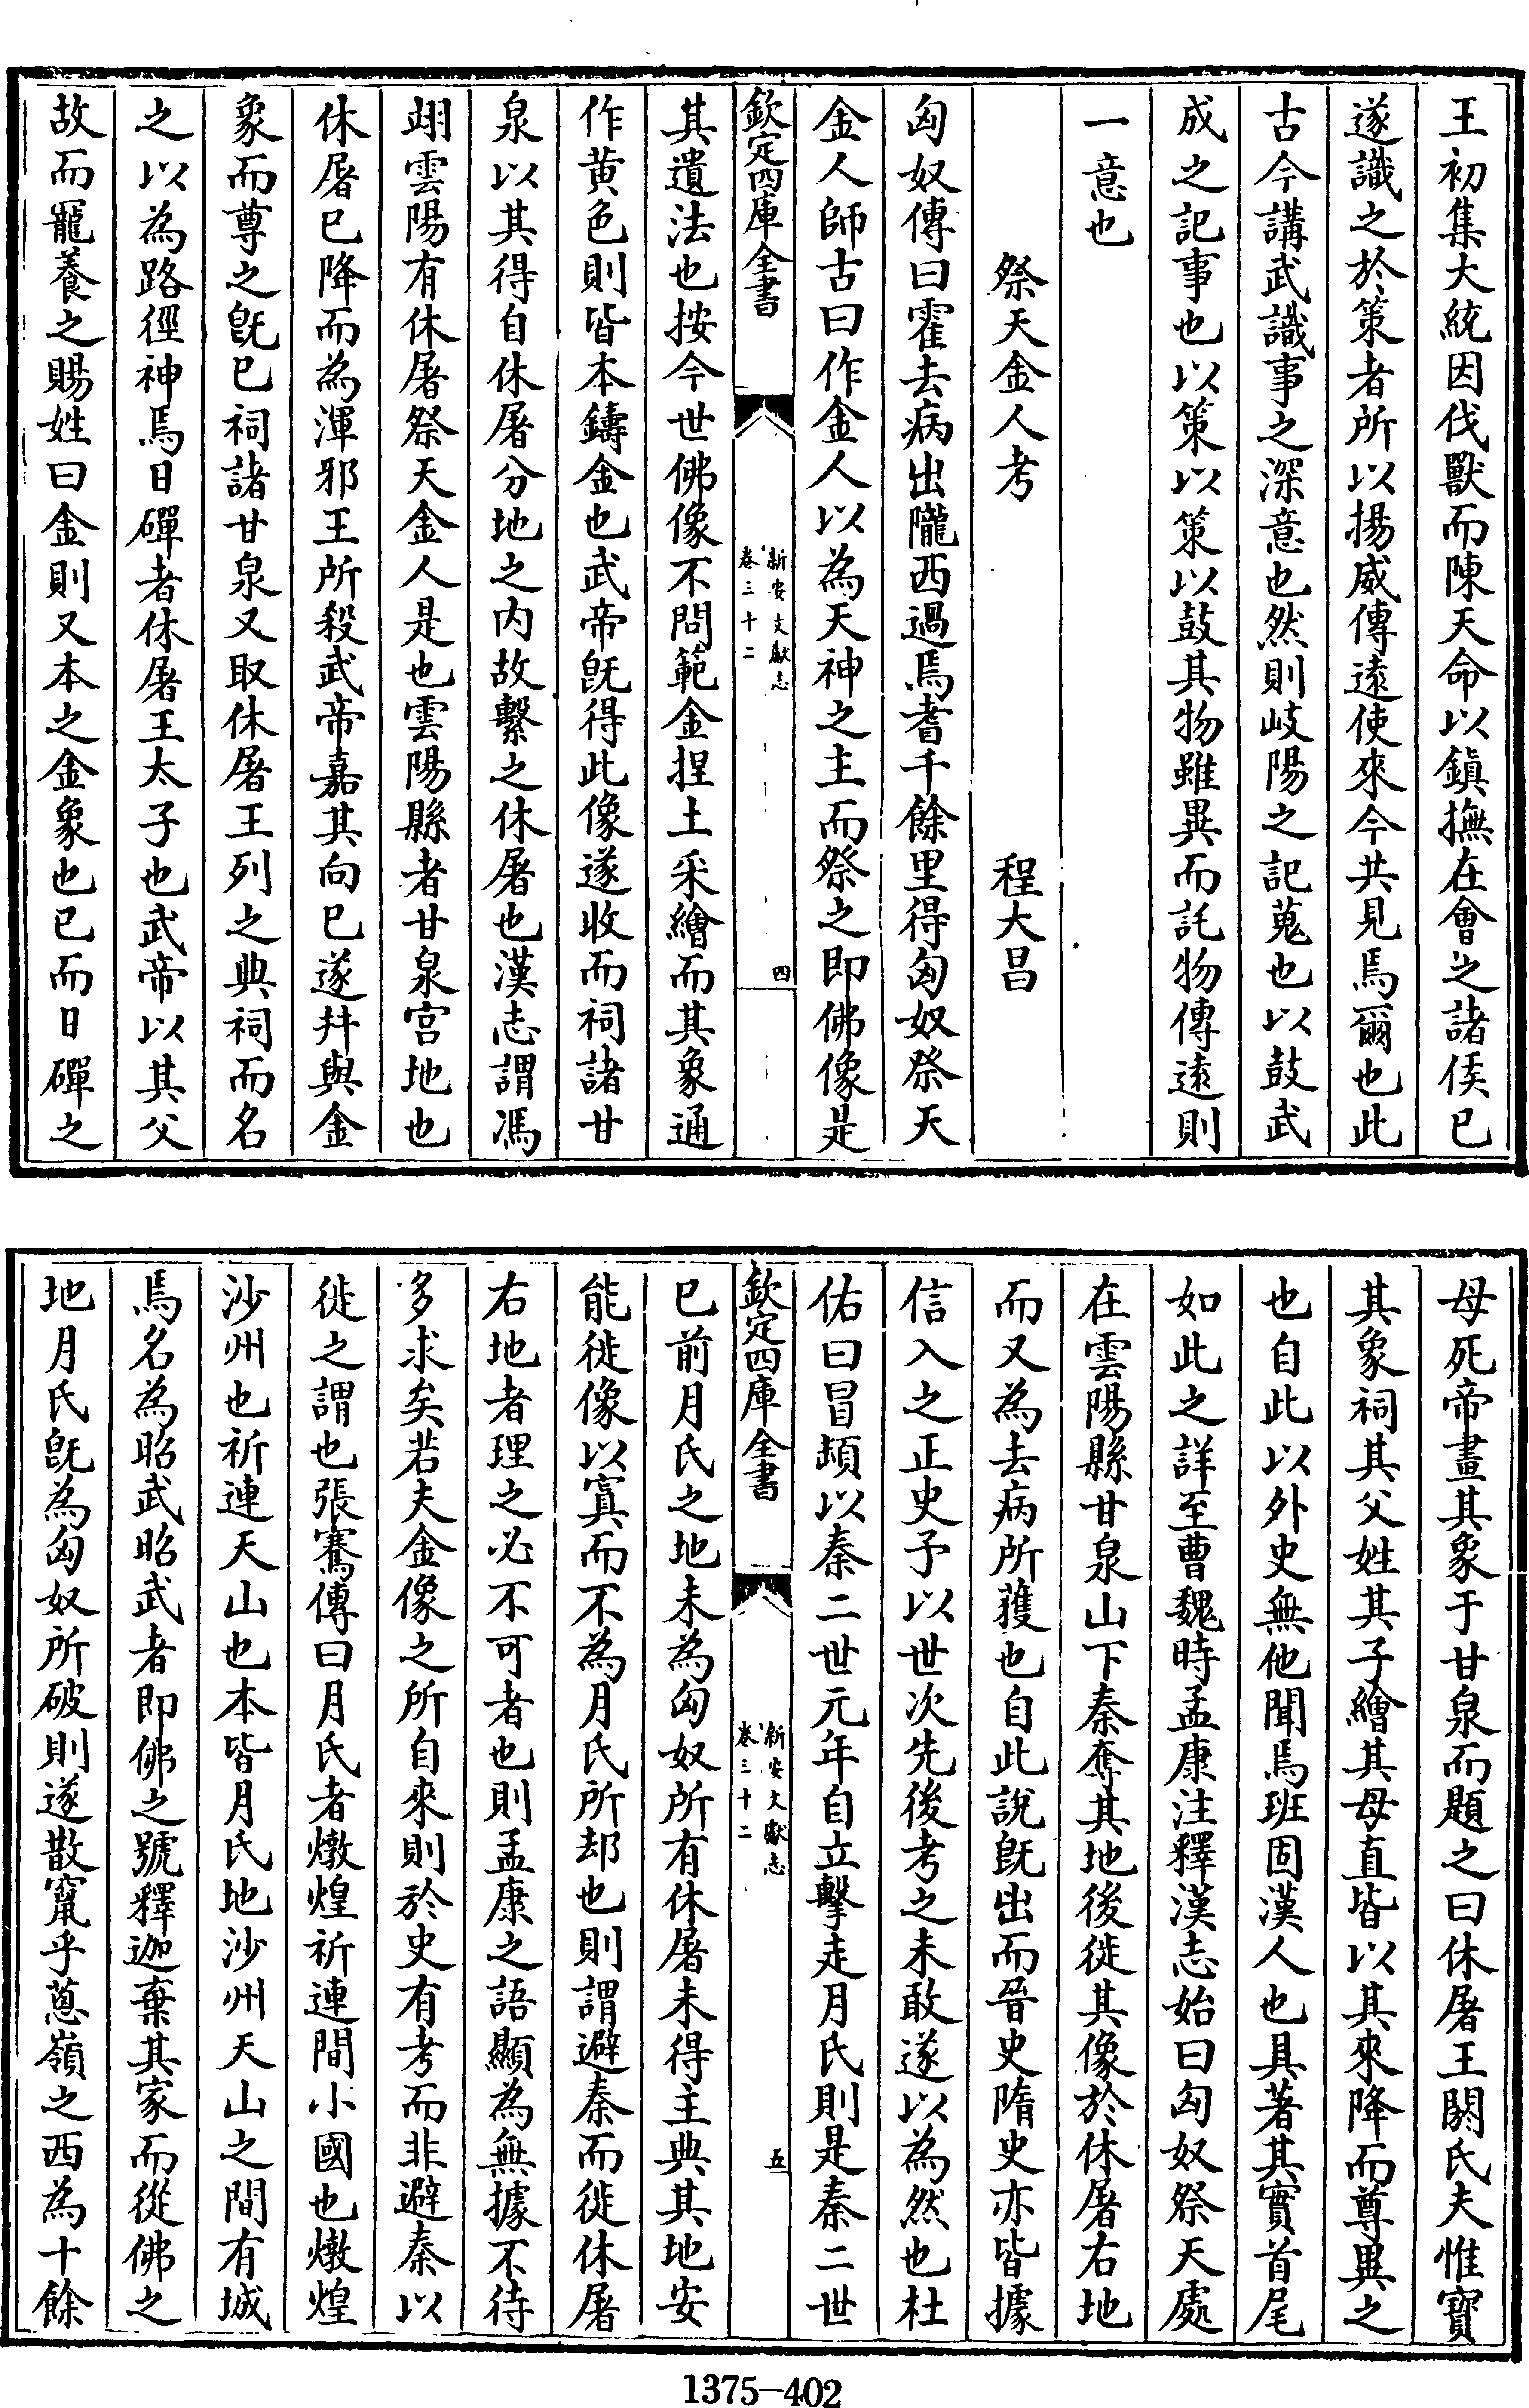 王初集大統因伐獸而陳天命以鎮撫在會之諸侯已
遂識之於策者所以揚威傳遠使來今共見焉爾也此
古今講武識事之深意也然則岐陽之記蒐也以鼓武
成之記事也以策以策以鼓其物雖異而託物傳遠則
一意也
祭天金人考 程大昌
匈奴傳曰霍去病出隴西過焉耆千餘里得匈奴祭天
金人師古曰作金人以為天神之主而祭之即佛像是
欽定四庫全書
新安文獻志
卷三十二
四
其遺法也按今世佛像不問範金捏土采繪而其象通
作黄色則皆本鑄金也武帝既得此像遂收而祠諸甘
泉以其得自休屠分地之内故繫之休屠也漢志謂馮
翊雲陽有休屠祭天金人是也雲陽縣者甘泉宫地也
休屠已降而為渾邪王所殺武帝嘉其向已遂并與金
象而尊之既已祠諸甘泉又取休屠王列之典祠而名
之以為路徑神焉日磾者休屠王太子也武帝以其父
故而寵養之賜姓曰金則又本之金象也已而日磾之
母死帝畫其象于甘泉而題之曰休屠王閼氏夫惟寳
其象祠其父姓其子繪其母直皆以其來降而尊異之
也自此以外史無他聞焉班固漢人也具著其實首尾
如此之詳至曹魏時孟康注釋漢志始曰匈奴祭天處
在雲陽縣甘泉山下秦奪其地後徙其像於休屠右地
而又為去病所獲也自此說既出而晉史隋史亦皆據
信入之正史予以世次先後考之未敢遂以為然也杜
佑曰冒頓以秦二世元年自立擊走月氏則是秦二世
欽定四庫全書
新安文獻志
卷三十二
五
已前月氏之地未為匈奴所有休屠未得主典其地安
能徙像以寘而不為月氏所却也則謂避秦而徙休屠
右地者理之必不可者也則孟康之語顯為無據不待
多求矣若夫金像之所自來則於史有考而非避秦以
徙之謂也張騫傳曰月氏者燉煌祈連間小國也燉煌
沙州也祈連天山也本皆月氏地沙州天山之間有城
焉名為昭武昭武者即佛之號釋迦棄其家而從佛之
地月氏既為匈奴所破則遂散竄乎蔥嶺之西為十餘
1375-402